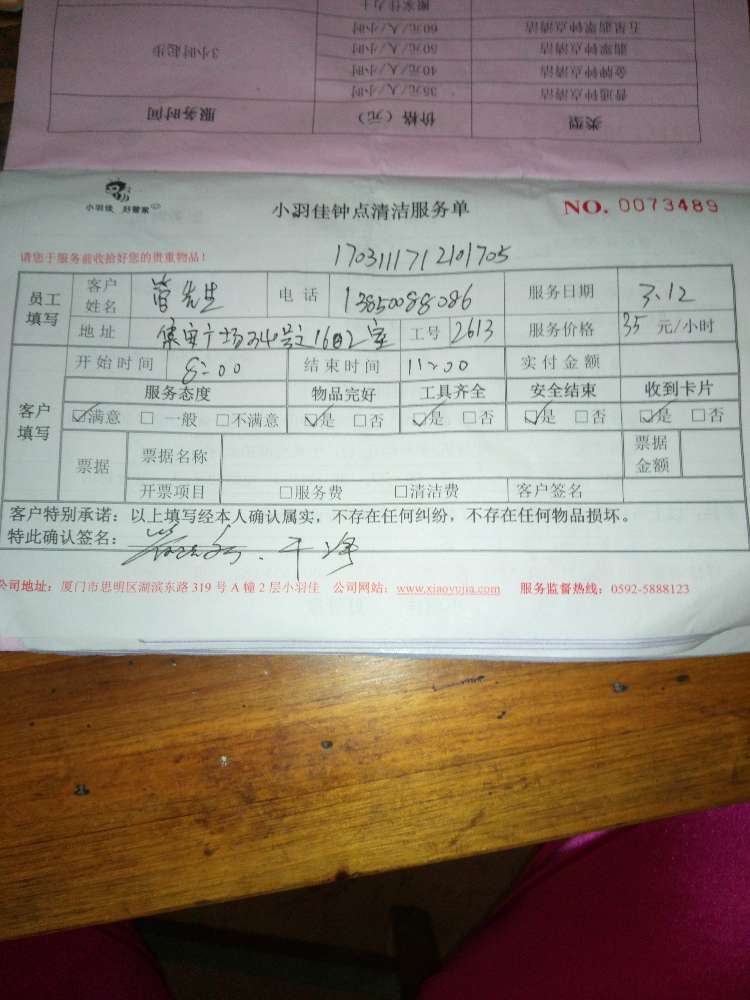 搬家佳力士
五星翡翠钟点清洁 60元/人/小时
翡翠钟点清洁 50元/人/小时 3小时起步
金牌钟点清洁 40元/人/小时
普通钟点清洁 35元/人/小时
类型 价格(元) 服务时间
小羽佳 好管家
小羽佳钟点清洁服务单
NO. 0073489
请您于服务前收拾好您的贵重物品!
1703111712101705
员工填写 客户姓名 管先生 电话 13850088086 服务日期 3.12
地址 广场34号之1602室 工号 2613 服务价格 35 元/小时
客户填写 开始时间 8:00 结束时间 11:00 实付金额
服务态度 物品完好 工具齐全 安全结束 收到卡片
☑满意 □一般 □不满意 ☑是 □否 ☑是 □否 ☑是 □否 ☑是 □否
票据 票据名称 票据金额
开票项目 □服务费 □清洁费 客户签名
客户特别承诺:以上填写经本人确认属实,不存在任何纠纷,不存在任何物品损坏。
特此确认签名: 干净
公司地址:厦门市思明区湖滨东路 319 号 A 幢 2 层小羽佳 公司网站:www.xiaoyujia.com 服务监督热线:0592-5888123